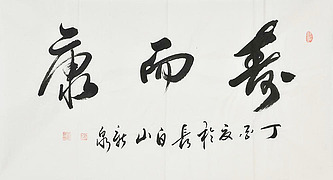 寿而康
丁亥夏於長白山新泉